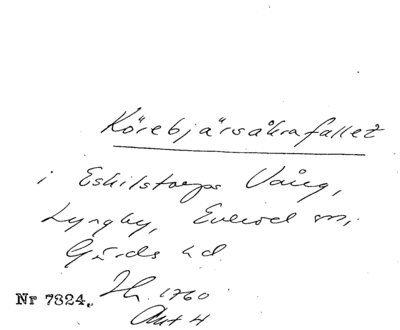 Körebjärsåkrafallet
i Eskilstorps Vång,
Lyngby, Everöd m,
Gärds hd
Nr 7824. Th. 1760
Akt 4